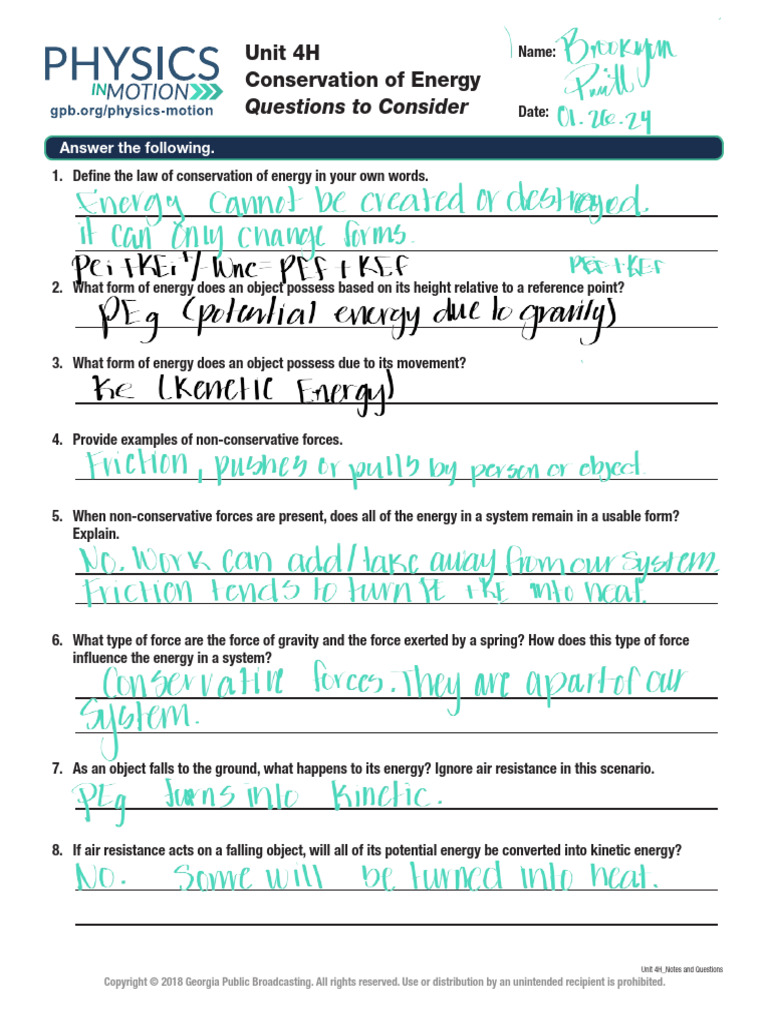 PHYSICS
IN MOTION
gpb.org/physics-motion
Unit 4H
Conservation of Energy
Questions to Consider
Name: Brooklynn
Date: 01.26.24
Answer the following.
1. Define the law of conservation of energy in your own words.
Energy cannot be created or destroyed.
it can only change forms.
PEi + KEi +/- Wnc = PEf + KEf
2. What form of energy does an object possess based on its height relative to a reference point?
PEg (potential energy due to gravity)
3. What form of energy does an object possess due to its movement?
Ke (Kenetic Energy)
4. Provide examples of non-conservative forces.
Friction, pushes or pulls by person or object
5. When non-conservative forces are present, does all of the energy in a system remain in a usable form?
Explain.
No. Work can add/take away from our system
Friction tends to turn it into heat.
6. What type of force are the force of gravity and the force exerted by a spring? How does this type of force
influence the energy in a system?
Conservative forces. They are apart of our
system.
7. As an object falls to the ground, what happens to its energy? Ignore air resistance in this scenario.
PEg turns into kinetic.
8. If air resistance acts on a falling object, will all of its potential energy be converted into kinetic energy?
No. Some will be turned into heat.
Unit 4H_Notes and Questions
Copyright © 2018 Georgia Public Broadcasting. All rights reserved. Use or distribution by an unintended recipient is prohibited.